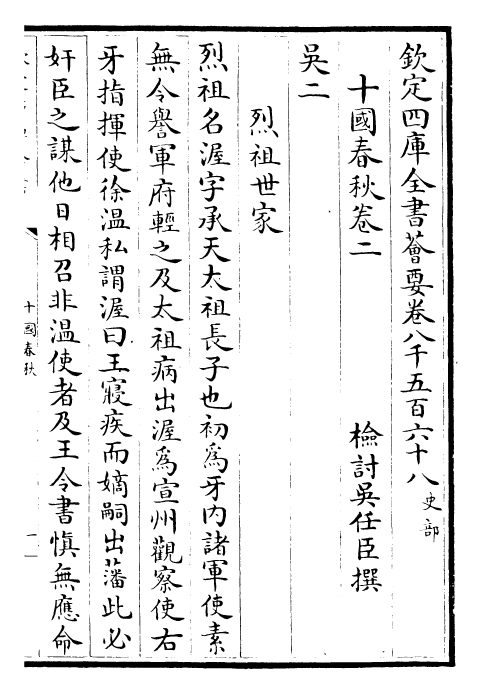 欽定四庫全書薈要卷八千五百六十八 史部
十國春秋卷二 檢討吳任臣撰
吳二
烈祖世家
烈祖名渥字承天太祖長子也初為牙內諸軍使素
無令譽軍府輕之及太祖病出渥為宣州觀察使右
牙指揮使徐溫私謂渥曰王寢疾而嫡嗣出藩此必
奸臣之謀他日相召非溫使者及王令書慎無應命
十國春秋
一